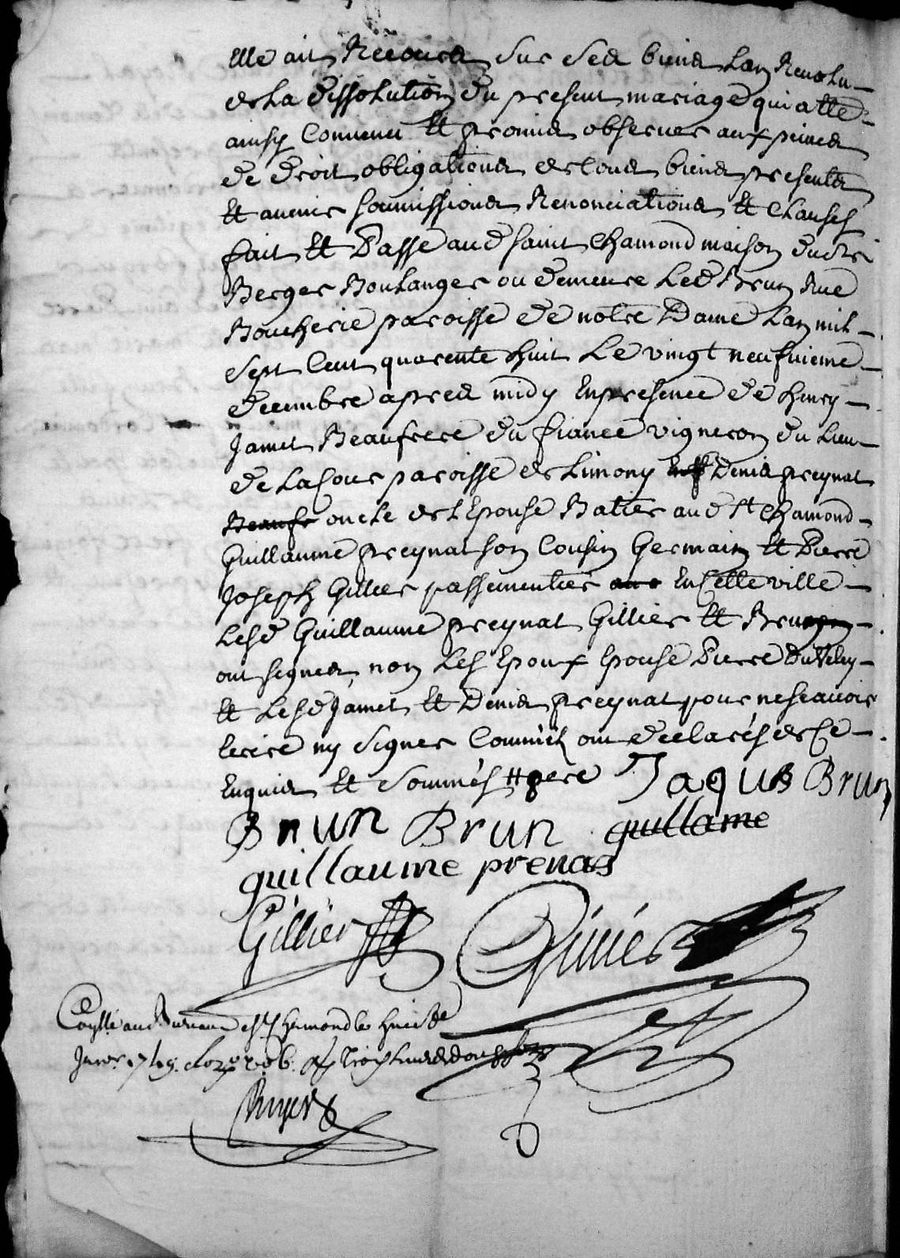 Elle ait Recours sur ses biens L'an Revolu
de La dissolution du present mariage qui a été
ainsy Convenu Et promis observer aux peines
de droit obligations de tous biens presents
Et avenir soumissions Renonciations Et Clauses
fait Et Passé aud saint Chamond maison du Sr
Berger Boulanger ou demeure Led Brun Rue
Boucherie paroisse de notre Dame L'an mil
sept Cent quarente huit Le vingt neufvieme
decembre apres midy En presence de himry
Jamet Beaufrere du fiancé vigneron du Lieu
de Lacour paroisse de Limony Denis preynat
Beaufr oncle de l'Epouse Batier aud St Chamond
Guillaume preynat son Cousin Germain Et Pierre
Joseph Gillier passementier En Cette ville
Lesd Guillaume preynat Gillier Et Brun
ont signés non Les Epoux Epouse Pierre
Et Lesd Jamet Et Denis preynat pour ne scavoir
Ecrire ny signer Comm'ils ont declarés de Ce
Enquis Et Sommés pere Jaqus Brun
Brun Brun guillame
guillaume prenas
Gillier
Con^llé au Bureau de St Chamond le huit
Janv^r 1749